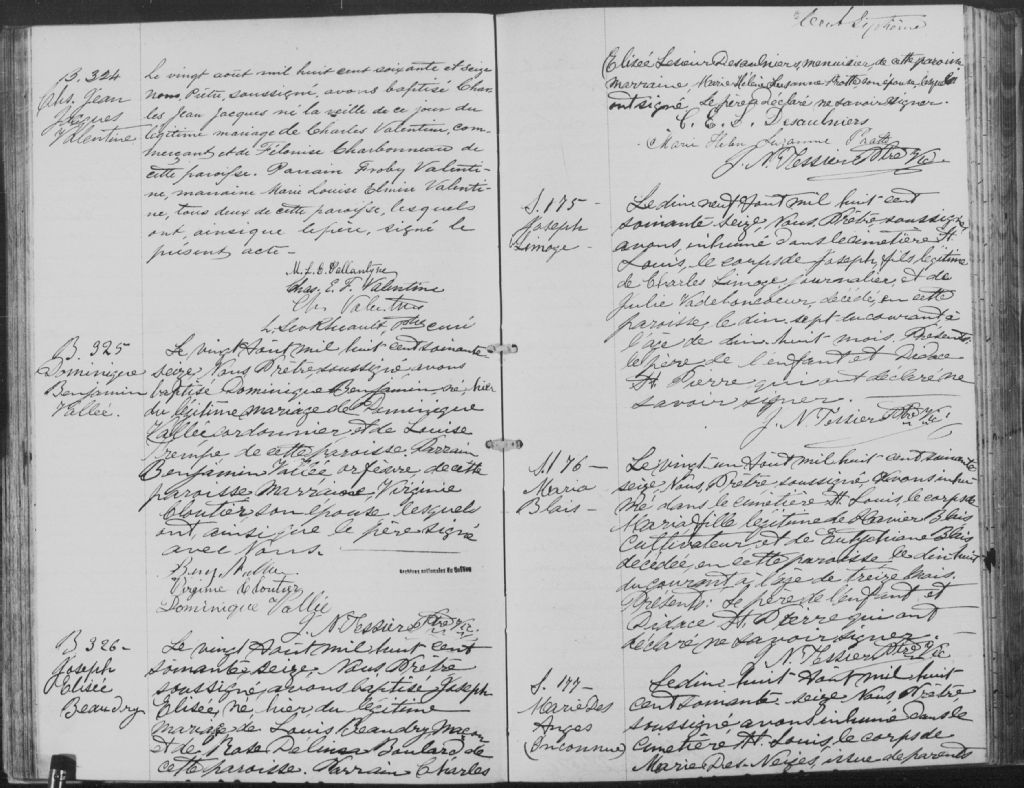 B. 324
Chs. Jean
Jacques
Valentine
Le vingt août mil huit cent soixante et seize
nous, Prêtre, soussigné, avons baptisé Char-
les Jean Jacques né la veille de ce jour du
légitime mariage de Charles Valentine, com-
merçant et de Félonise Charbonneau de
cette paroisse. Parrain Froby Valenti-
ne, marraine Marie Louise Elmire Valenti-
ne, tous deux de cette paroisse, lesquels
ont, ainsi que le père, signé le
présent acte -
Chas. E. F. Valentine
Chs Valentine
Ptre curé
B. 325
Dominique
Benjamin
Vallée.
Le vingt Août mil huit cent soixante-
seize, Nous Prêtre soussigné avons
baptisé Dominique Benjamin, né, hier
du légitime mariage de Dominique
Vallée cordonnier et de Louise
Trempe de cette paroisse Parrain
Benjamin Vallée orfèvre, de cette
paroisse marraine, Virginie
Cloutier, son épouse lesquels
ont, ainsi que le père signé
avec Nous.
Benj. Vallée
Virginie Cloutier
Dominique Vallée
J. N. Tessier Ptre Vic.
Archives nationales du Québec
B 326 -
Joseph
Elisée
Beaudry
Le vingt Août mil huit cent
soixante seize, Nous Prêtre
soussigné, avons baptisé Joseph
Elisée, né hier du légitime
mariage de Louis Beaudry Maçon
et de Rose Delima Boulard de
cette paroisse. Parrain Charles
Cent Septième
Elisée Lesieur Desaulniers, menuisier, de cette paroisse
marraine Marie Hélène Suzanne Pratte, son épouse, lesquels
ont signé. Le père a déclaré ne savoir signer.
C. E. L. Desaulniers
Marie Helen Suzanne Pratte
J. N. Tessier Ptre Vic.
S. 175 -
Joseph
Limoge -
Le dix neuf Août mil huit cent
soixante seize, Nous, Prêtre, soussigné,
avons, inhumé dans le cimetière St.
Louis, le corps de Joseph, fils légitime
de Charles Limoge, journalier, et de
Julie Vadeboncoeur, décédé, en cette
paroisse, le dix sept du courant à
l'âge de dix huit mois. Présents:
le père de l'enfant et Didace
St. Pierre qui ont déclaré ne
savoir signer.
J. N. Tessier Ptre Vic.
S. 176 -
Maria
Blais -
Le vingt un Août mil huit cent soixante
seize, Nous, Prêtre soussigné, avons inhu-
mé dans le cimetière St. Louis, le corps de
Maria fille légitime de Blais
cultivateur, et de Euphrosine Blais
décédée, en cette paroisse le dix huit
du courant, à l'âge de treize mois.
Présents: Le père de l'enfant et
Didace St. Pierre qui ont
déclaré ne savoir signer.
J. N. Tessier Ptre Vic.
S. 177 -
Marie Des
Anges
(Inconnue)
Le dix huit Août mil huit
cent soixante seize Nous Prêtre
soussigné, avons inhumé dans le
cimetière St. Louis, le corps de
Marie Des Neiges, issue de parents